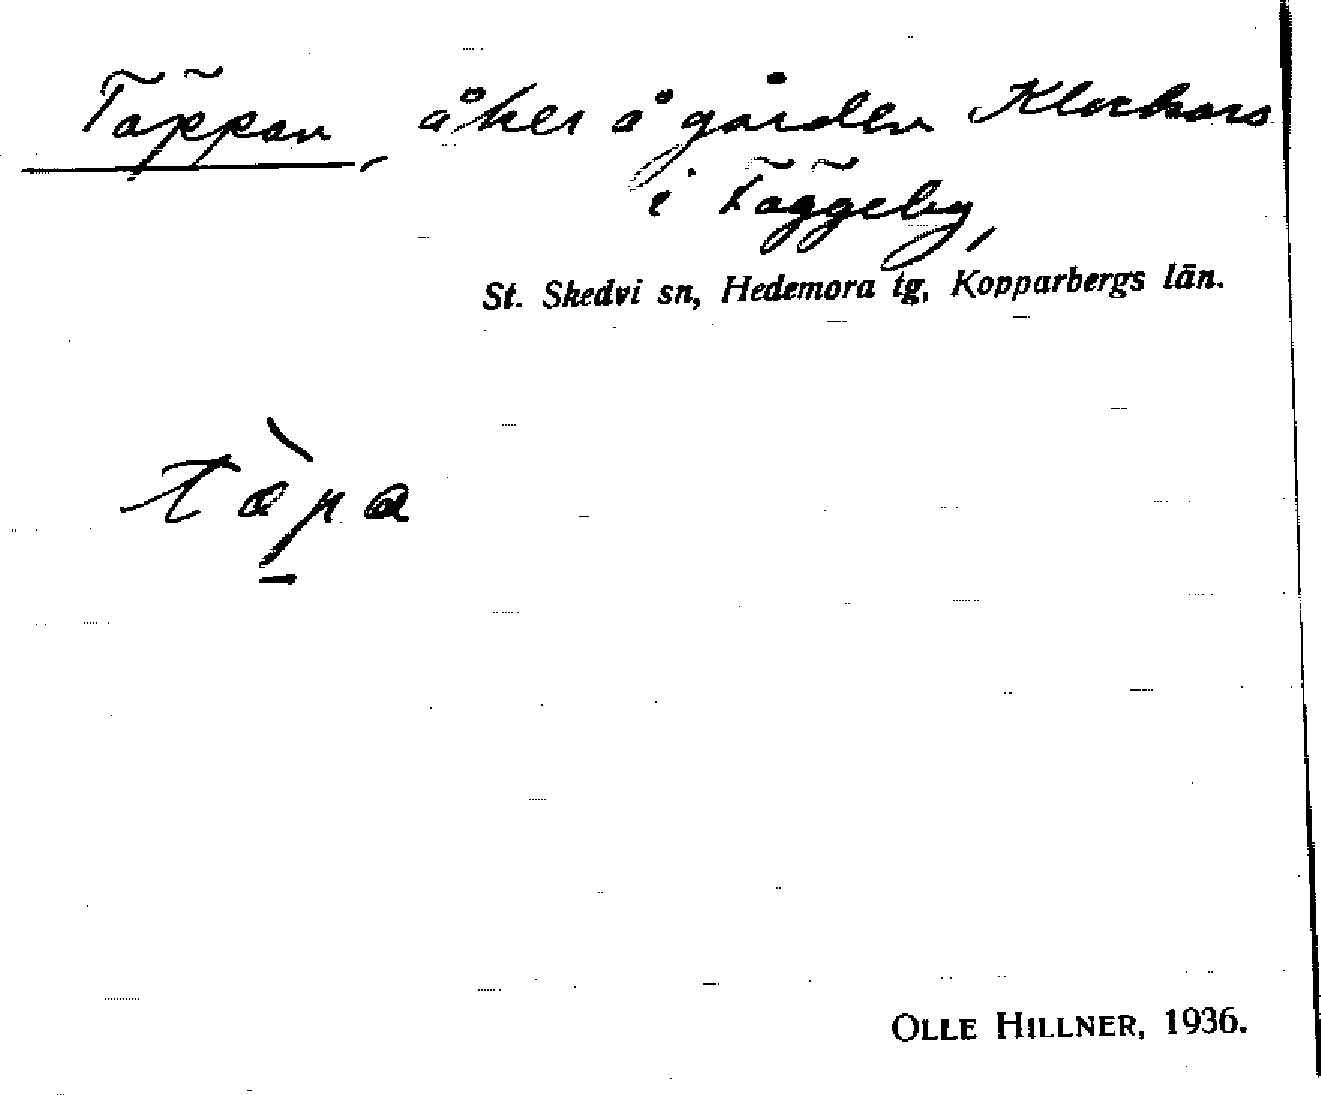 Täppan, åker å gården Klockars
i Täggeby,
St. Skedvi sn, Hedemora tg, Kopparbergs län.
tæ̀p̱a
OLLE HILLNER, 1936.